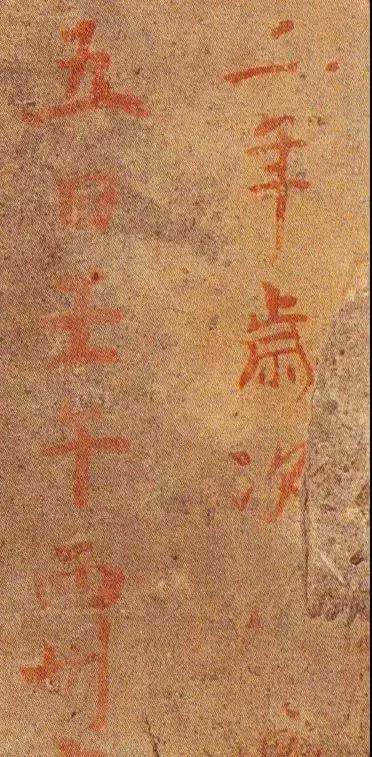 二年歲次
五日壬午西州